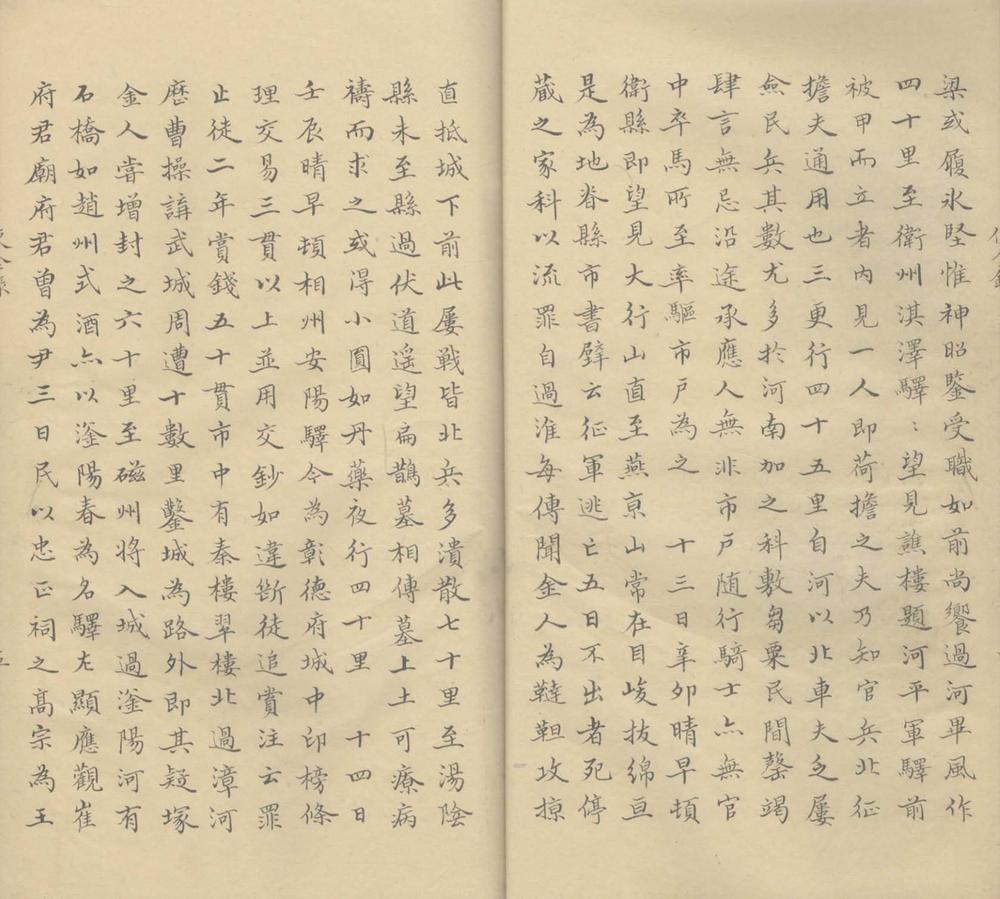 梁或履氷堅惟神昭鑒受職如前尚饗過河畢風作
四十里至衛州淇澤驛〻望見譙樓題河平軍驛前
被甲而立者内見一人即荷擔之夫乃知官兵北征
擔夫通用也三更行四十五里自河以北車夫乏屢
僉民兵其數尤多於河南加之科敷芻粟民間罄竭
肆言無忌沿途承應人無非市戸随行騎士亦無官
中卒馬所至率驅市戸為之　十三日辛夘晴早頓
衛縣即望見大行山直至燕京山常在目峻抜綿亘
是為地脊縣市書壁云征軍逃亡五日不出者死停
蔵之家科以流罪自過淮每傳聞金人為鞑靼攻掠
直抵城下前此屢戰皆北兵多潰散七十里至湯隂
縣未至縣過伏道遥望扁鵲墓相傳墓上土可療病
禱而求之或得小圓如丹藥夜行四十里　十四日
壬辰晴早頓相州安陽驛令為彰德府城中印榜條
理交易三貫以上並用交鈔如違斷徒追賞注云罪
止徒二年賞錢五十貫市中有秦樓翠樓北過漳河
歴曹操講武城周遭十數里鑿城為路外即其疑塚
金人甞增封之六十里至磁州将入城過滏陽河有
石橋如趙州式酒亦以滏陽春為名驛左顯應觀崔
府君廟府君曽為尹三日民以忠正祠之髙宗為王